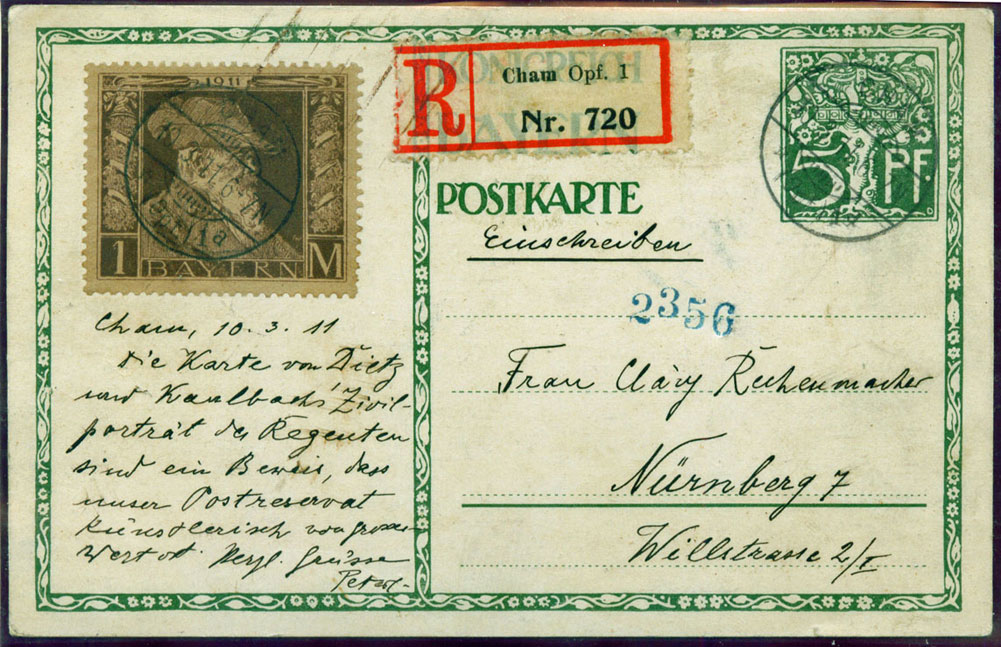 1911
1 BAYERN M
R
Cham Opf. 1
Nr. 720
KÖNIGREICH
BAYERN
POSTKARTE
Einschreiben
5 PF.
2356
Cham, 10. 3. 11
Die Karte von Dietz
und Kaulbachs Zivil-
porträt des Regenten
sind ein Beweis, dass
unser Postreservat
künstlerisch von grossem
Wert ist. Herzl. Grüsse
Frau Cläry
Nürnberg 7
Willstrasse 2/I